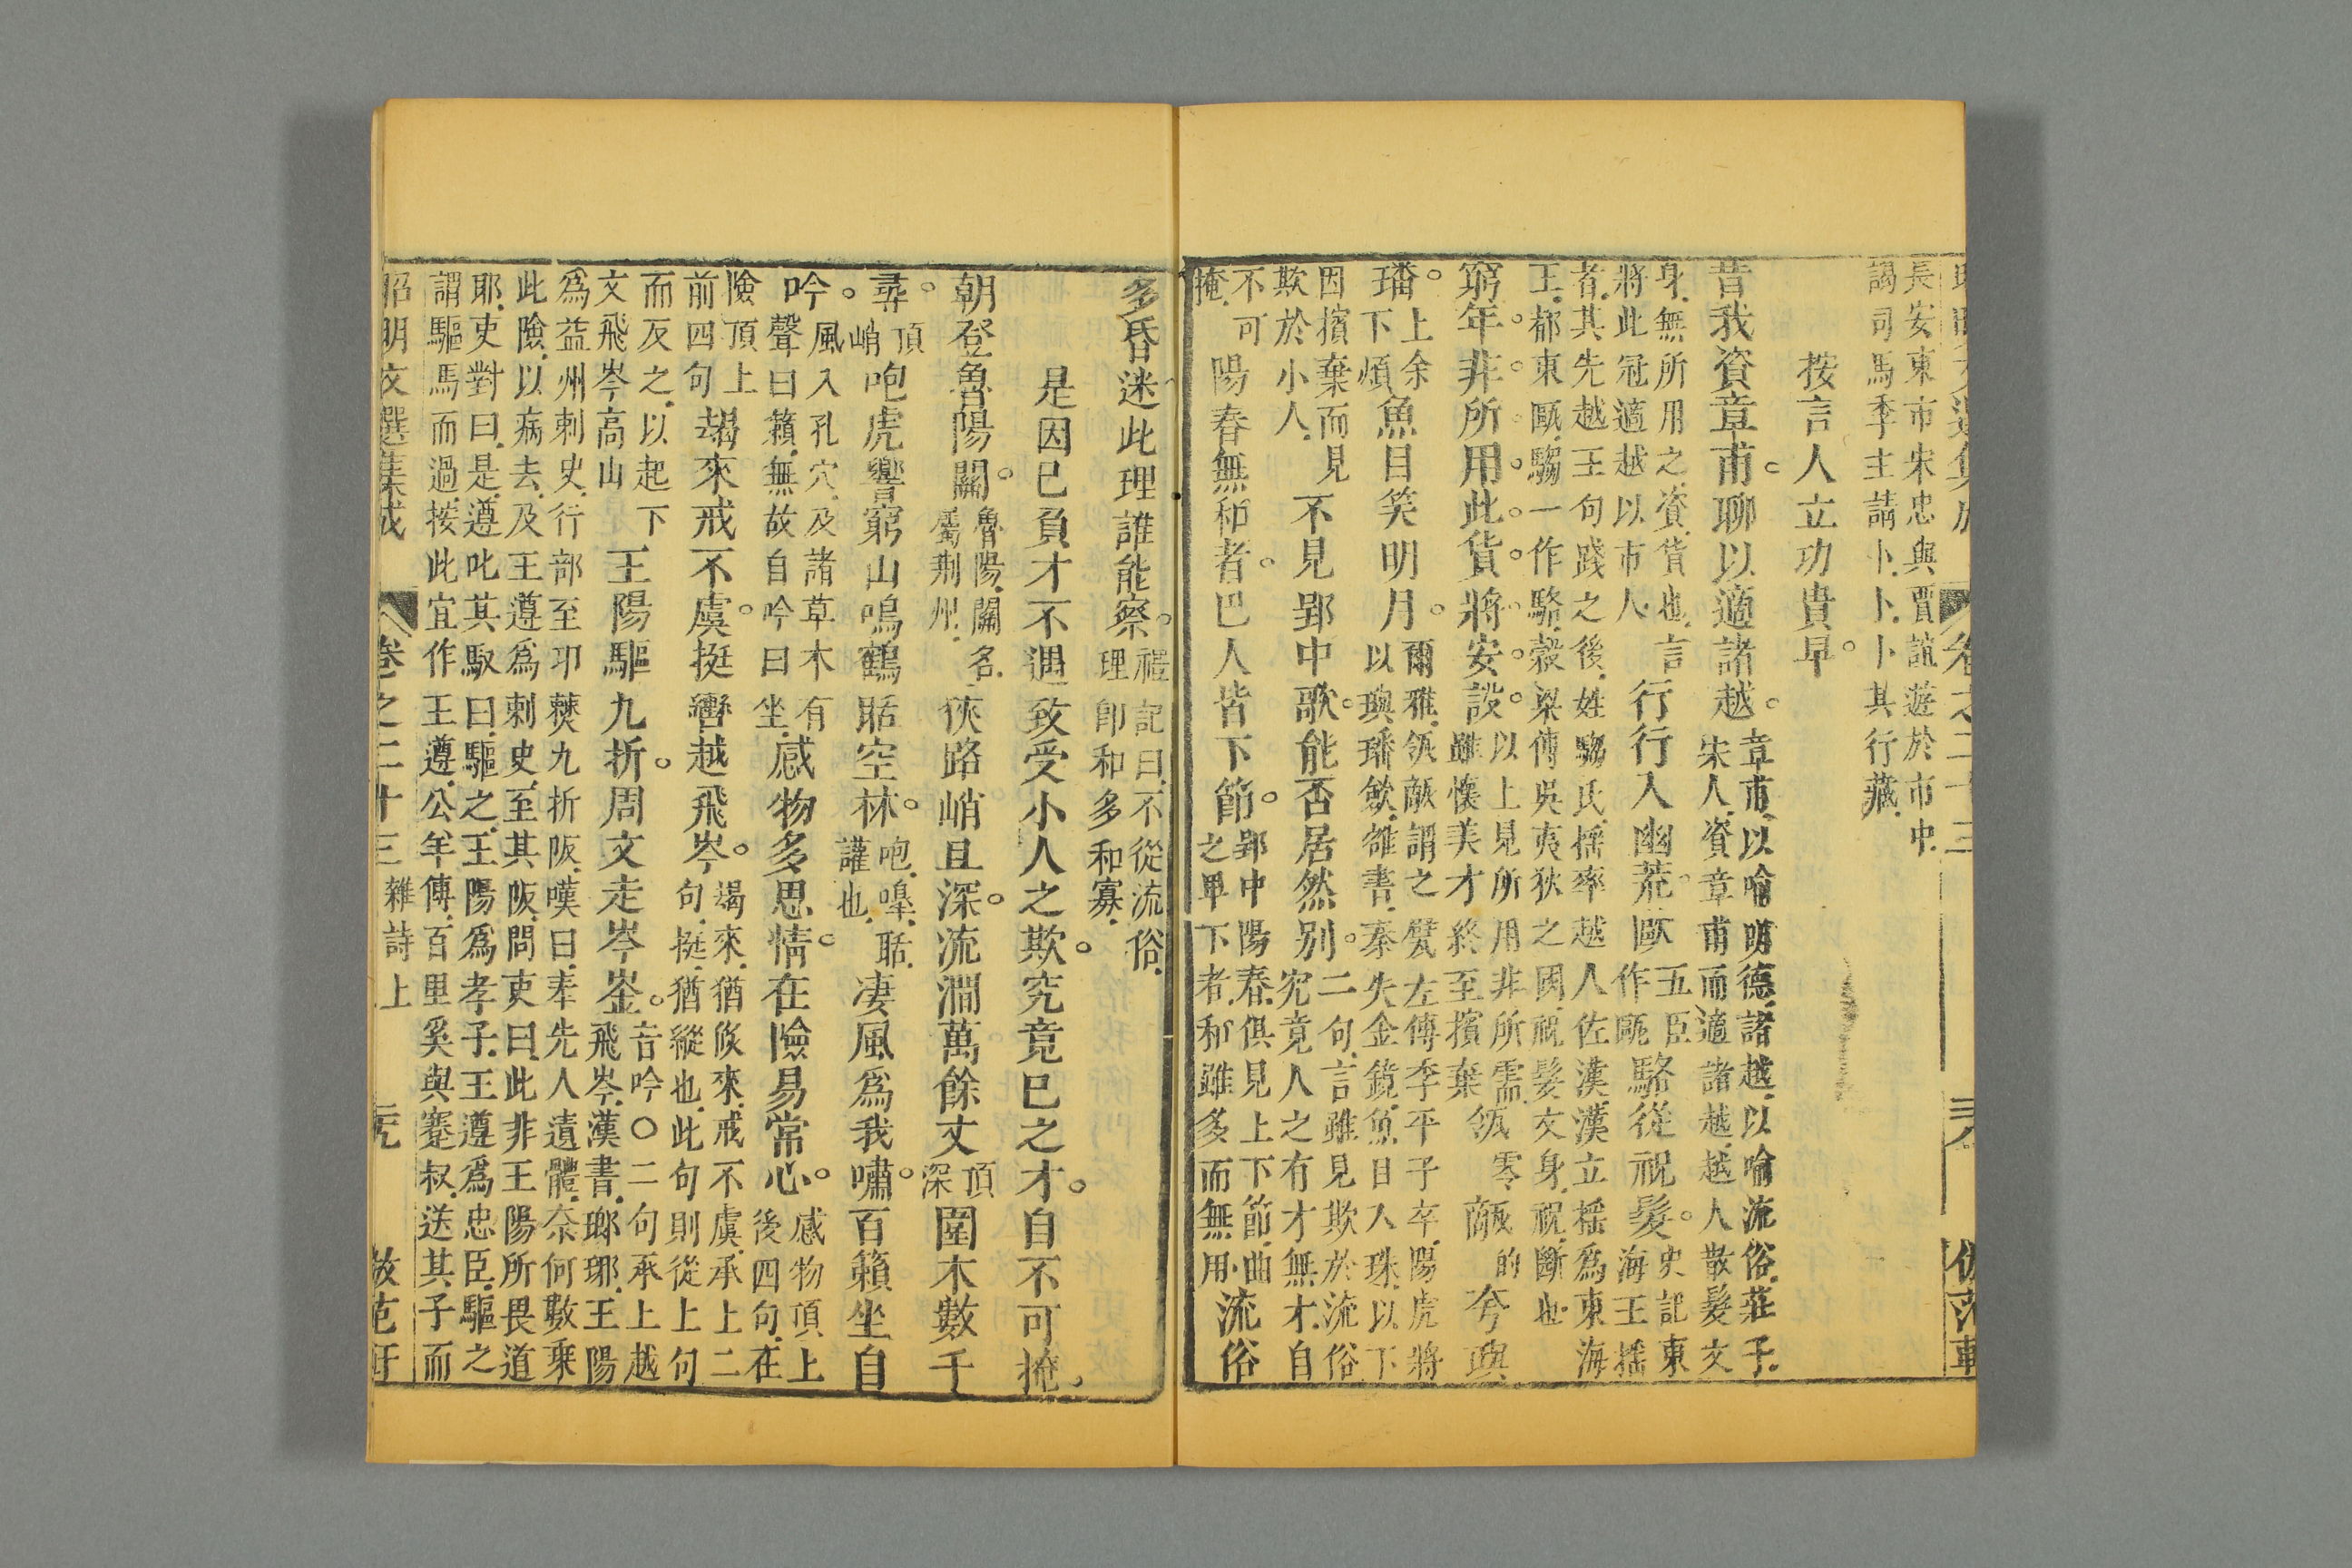 長安東市宋忠與賈誼遊於市中
謁司馬季主請卜卜卜其行藏
按言人立功貴早
昔我資章甫聊以適諸越
章甫以喻明德諸越以喻流俗莊子
宋人資章甫而適諸越越人散髮文
身無所用之資貨也言
將此冠適越以市人
行行入幽荒歐
五臣
作甌
駱從祝髮
史記東
海王搖
者其先越王句踐之後姓騶氏搖率越人佐漢漢立搖爲東海
王都東甌騶一作駱穀梁傳吳夷狄之國祝髮文身祝斷也
窮年非所用此貨將安設
以上見所用非所需
雖懷美才終至擯棄
瓴
零
甋
的
夸璵
璠
上余
下煩
魚目笑明月
爾雅瓴甋謂之甓左傳季平子卒陽虎將
以璵璠斂雒書秦失金鏡魚目入珠以下
因擯棄而見
欺於小人
不見郢中歌能否居然別
二句言雖見欺於流俗
究竟人之有才無才自
不可
掩
陽春無和者巴人皆下節
郢中陽春俱見上下節曲
之單下者和雖多而無用
流俗
多昏迷此理誰能察
禮記曰不從流俗
理卽和多和寡
是因已負才不遇致受小人之欺究竟已之才自不可掩
朝登魯陽關
魯陽關名
屬荆州
狹路峭且深流澗萬餘丈
頂
深
圍木數千
尋
頂
峭
咆虎響窮山鳴鶴聒空林
咆嘷聒
讙也
凄風爲我嘯百籟坐自
吟
風入孔穴及諸草木有
聲曰籟無故自吟曰坐
感物多思情在險易常心
感物頂上
後四句在
險頂上
前四句
朅來戒不虞挺轡越飛岑
朅來猶倐來戒不虞承上二
句挺猶縱也此句則從上句
而反之以起下
文飛岑高山
王陽驅九折周文走岑崟
音吟〇二句承上越
飛岑漢書瑯琊王陽
爲益州刺史行部至卭僰九折阪嘆曰奉先人遺體奈何數乘
此險以病去及王遵爲刺史至其阪問吏曰此非王陽所畏道
耶吏對曰是遵叱其馭曰驅之王陽爲孝子王遵爲忠臣驅之
謂驅馬而過按此宜作王遵公羊傳百里奚與蹇叔送其子而
昭明文選集成
卷之二十三
雜詩上